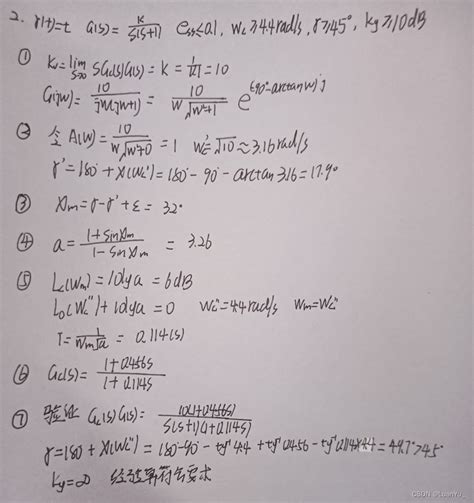 2. r(t)=t G(s)=K/S(S+1) ess≤0.1, Wc≥4.4rad/s, r≥45°, kg≥10dB
① Kv=lim s→0 SGc(s)G(s)=K=1/0.1=10
G(jw)=10/jw(jw+1)=10/w√w²+1 e^(-90°-arctanw)j
② 令A(w)=10/w√w²+0=1 Wc'=√10≈3.16rad/s
r'=180°+∠(Wc')=180°-90°-arctan3.16=17.9°
③ Xm=r-r'+ε=32°
④ a=1+sinXm/1-sinXm=3.26
⑤ Lc(Wm)=10lga=6dB
L0(Wc'')+10lga=0 Wc''=4.4rad/s Wm=Wc''
T=1/Wm√a=0.114(s)
⑥ Gc(s)=1+0.456s/1+0.114s
⑦ 验证 Gc(s)G(s)=10(1+0.456s)/S(s+1)(1+0.114s)
r=180+∠(Wc'')=180°-90°-tg⁻¹4.4+tg⁻¹0.456-tg⁻¹0.114×4.4=49.7°>45°
kg=∞ 经验算符合要求
CSDN